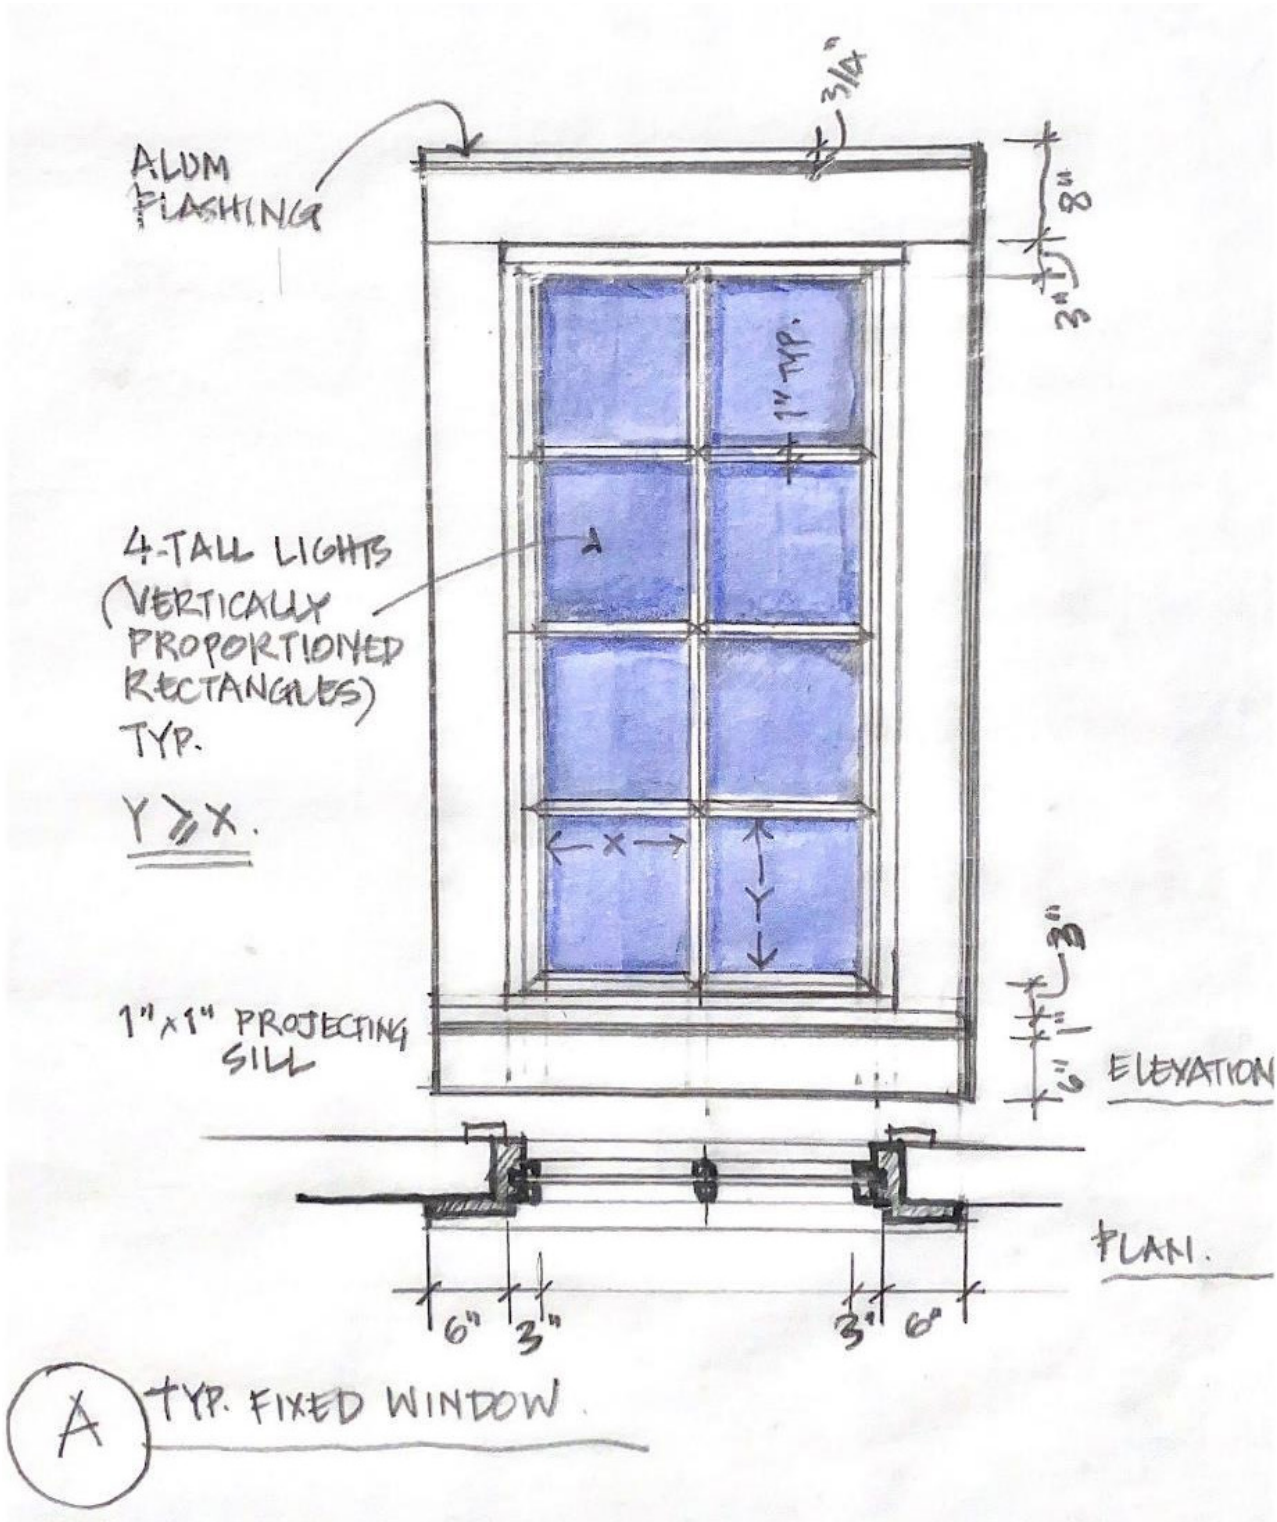 3/4"
ALUM
FLASHING
8"
3"
1" TYP.
4-TALL LIGHTS
(VERTICALLY
PROPORTIONED
RECTANGLES)
TYP.
Y ⩾ X.
X
Y
3"
1"
6"
1"x1" PROJECTING
SILL
ELEVATION
PLAN.
6" 3" 3" 6"
A TYP. FIXED WINDOW.